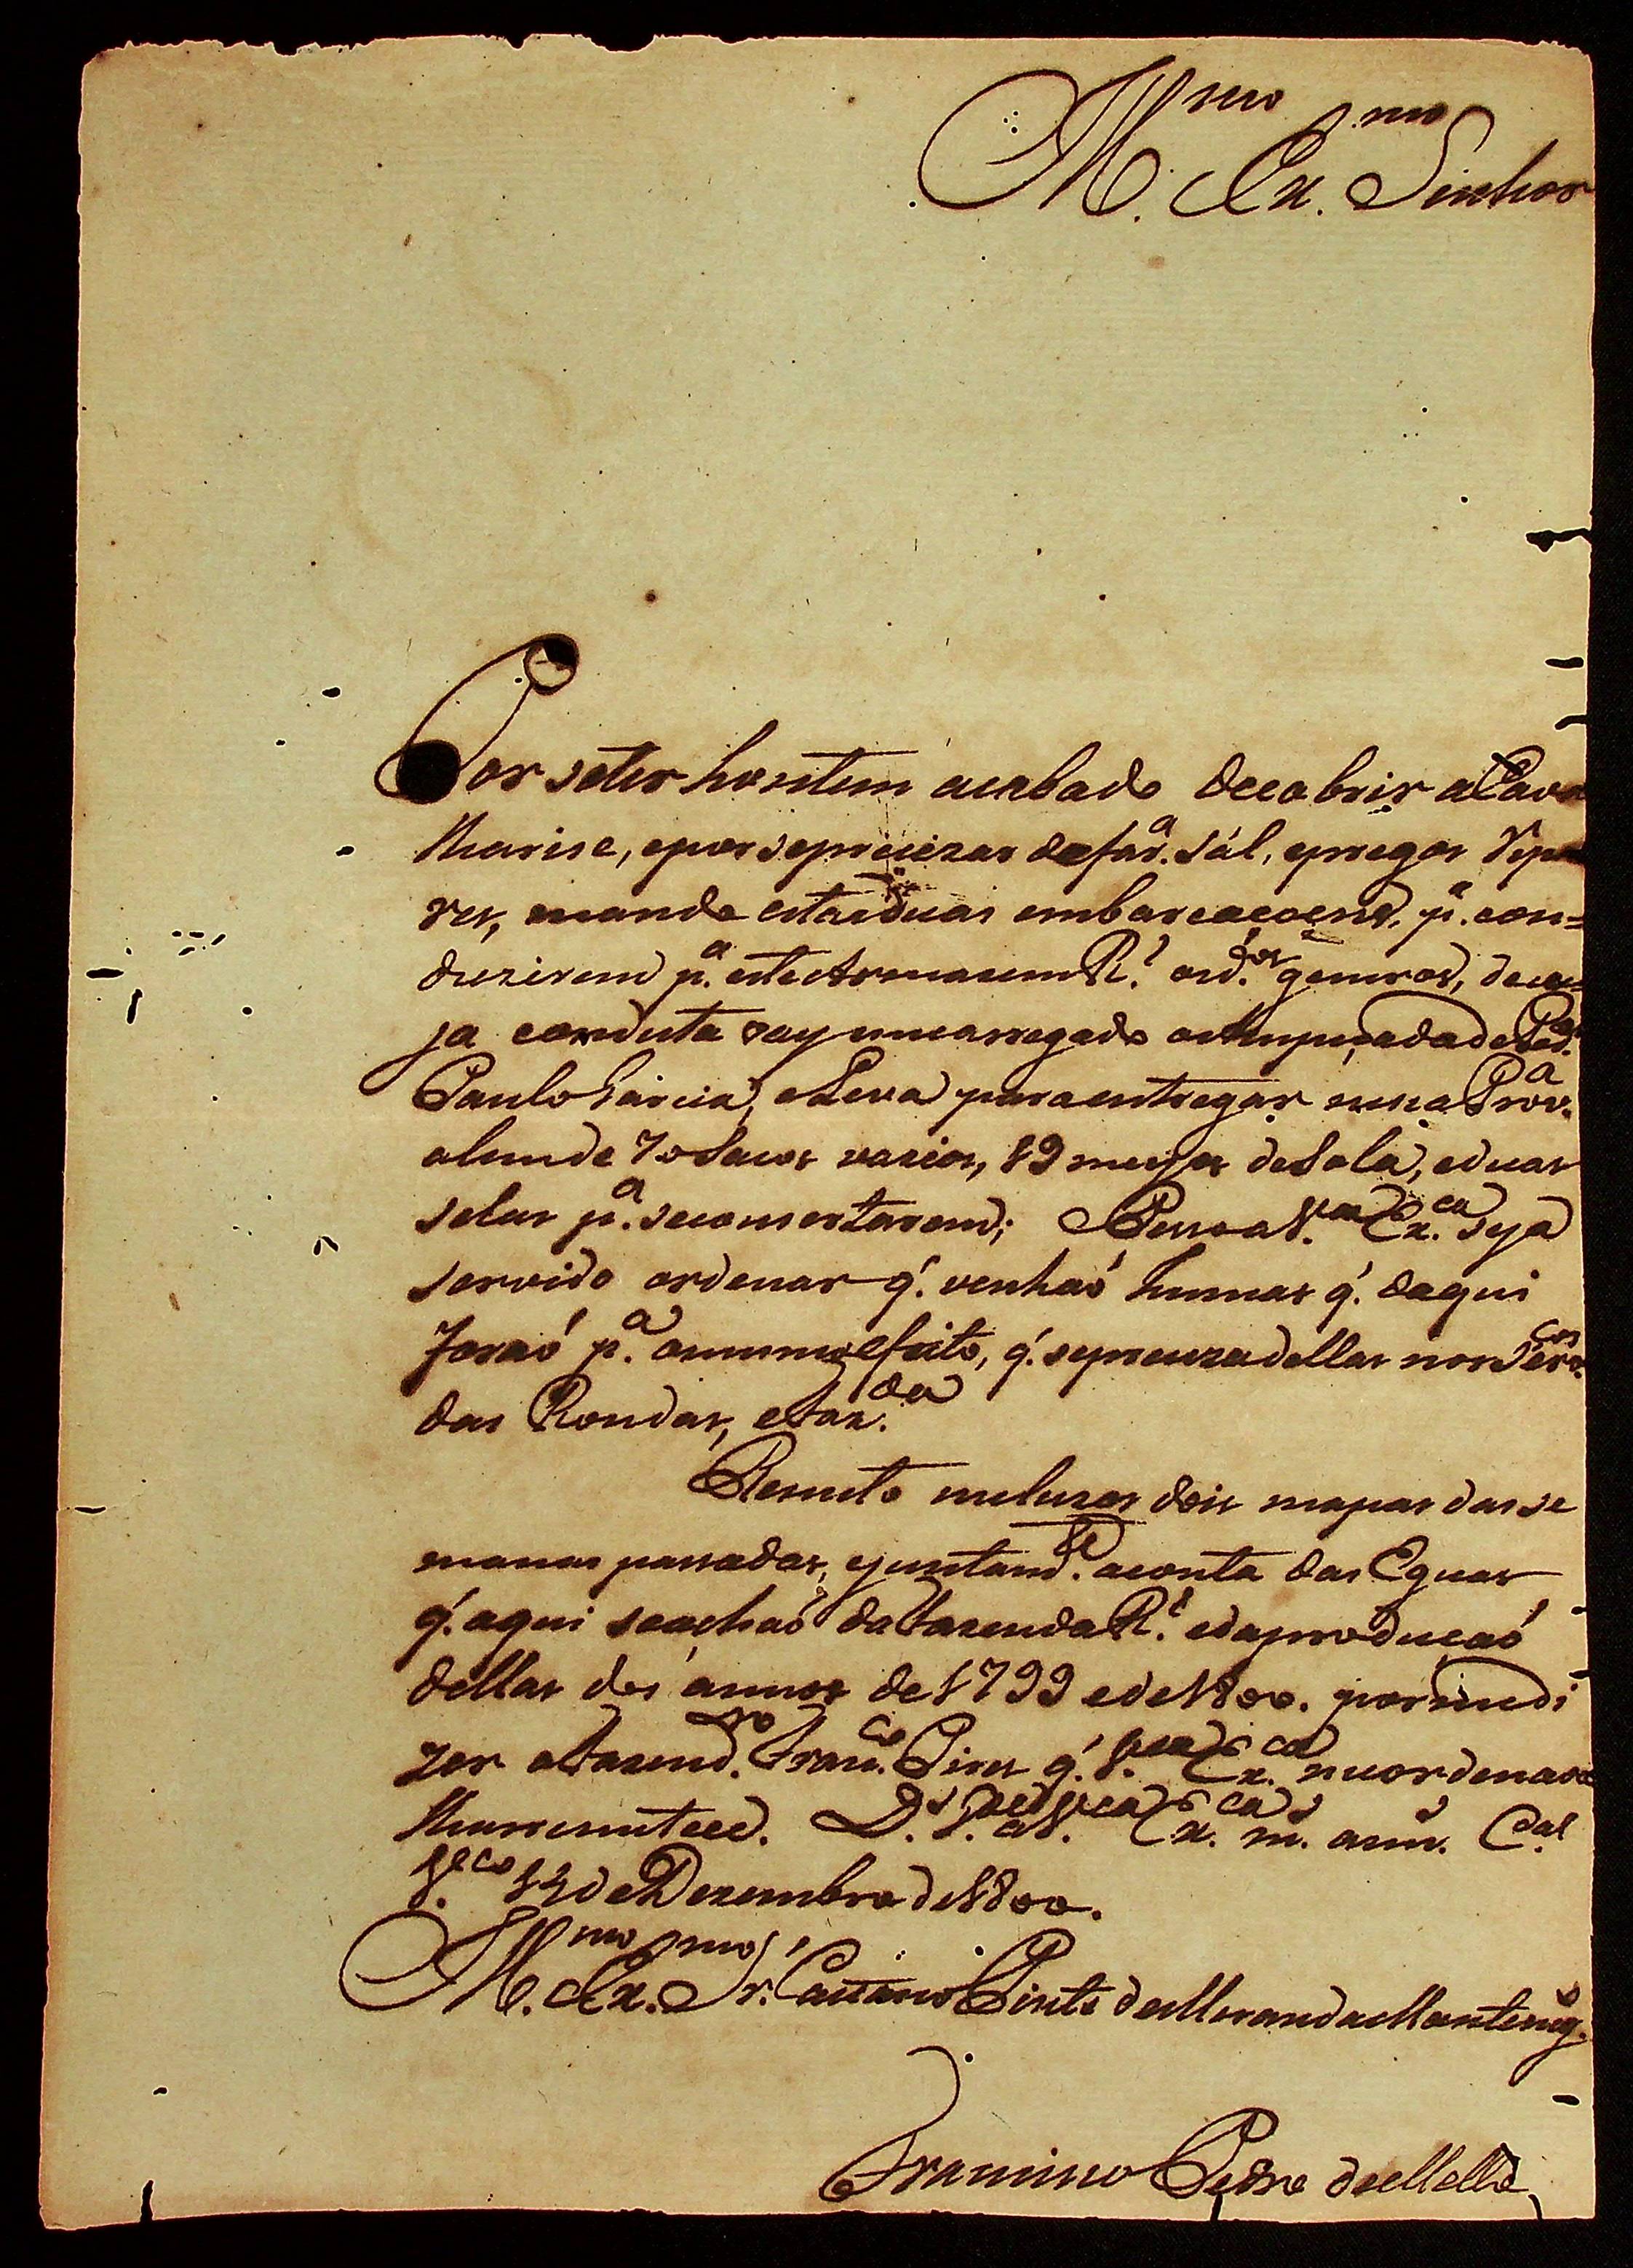 Illmo. Exmo. Senhor
Por seter hontem acabado decobrir a Cava
lharise, epor seprecizar defara. sál, epregos
res, mando estas duas embarcaçoens, pa. con=
duzirem pa. este Armazem Rl. os dos. generos, decu=
ja conduta vay encarregado o Anspeçada de Ped.
Paulo Garcia, eLeva para entregar nessa Prova.
alemde 70 Sacos vazios, 19 meyos deSola, eduas
selas pa. seconsertarem; Peço a Vea. Exca. seja
servido ordenar q̃. venhaó humas q̃. daqui
foraó pa. omesmo efeito, q̃. sepreciza dellas nos Serços.
das Rondas, eFazda.
Remeto incluzos dois mapas das se
manas passadas, ejuntamte. aconta das Egoas
q̃. aqui seachaó da Fazenda Rl. edaproduçaó
dellas dos annos de 1799 ede 1800. por me di
zer oFazendro. Franco. Pires q̃. Vea. Exca. me ordenava
lharemetece. Ds. Gde. a Vea. Exca. ms. anns. Cazal
Vco. 13 de Dezembro de 1800.
Illmo. Exmo. Sr. Caetano Pinto de Miranda Montenego.
Francisco Pedro de Mello